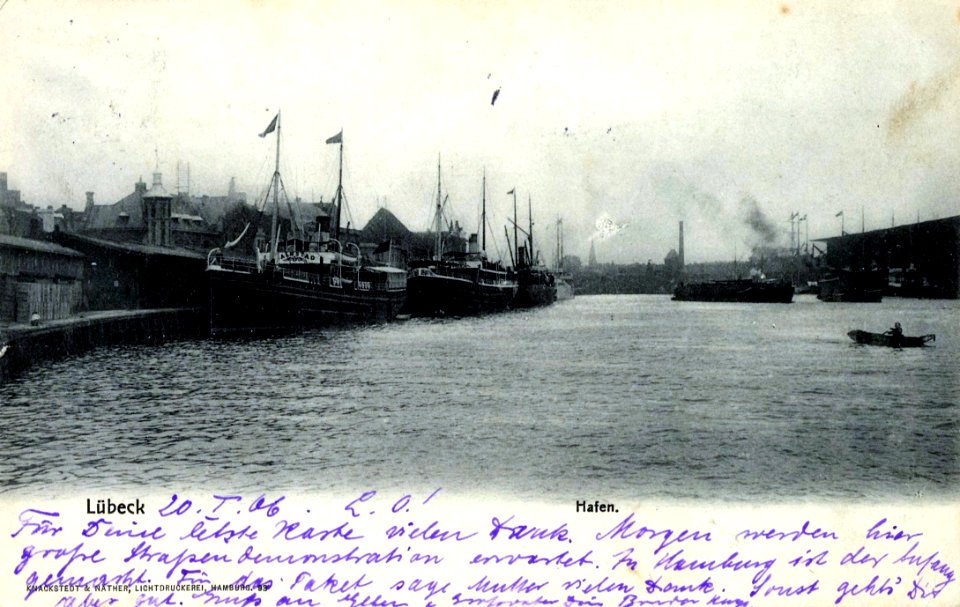 Lübeck 20. I. 06. L. O! Hafen.
Für Deine letzte Karte vielen Dank. Morgen werden hier
große Straßendemonstration erwartet. In Hamburg ist der Anfang
gemacht. Für das Paket sage Mutter vielen Dank. Sonst geht's Dir
KNACKSTEDT & NÄTHER, LICHTDRUCKEREI, HAMBURG.
aber gut. Gruß an Dein Bruder